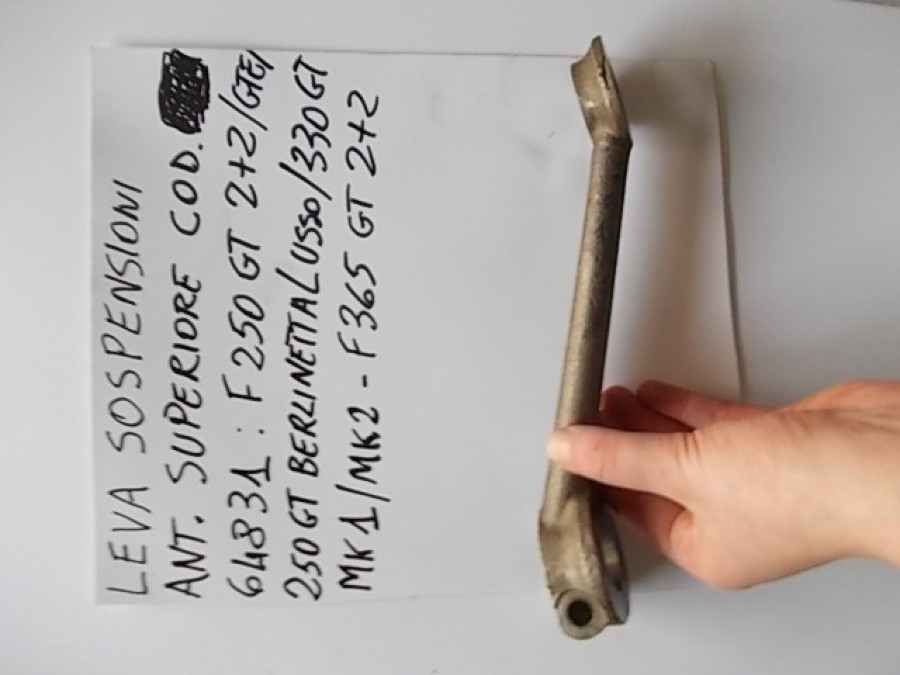 LEVA SOSPENSIONI
ANT. SUPERIORE COD.
64831 : F 250 GT 2+2/GTE/
250 GT BERLINETTA LUSSO/330 GT
MK1/MK2 - F365 GT 2+2